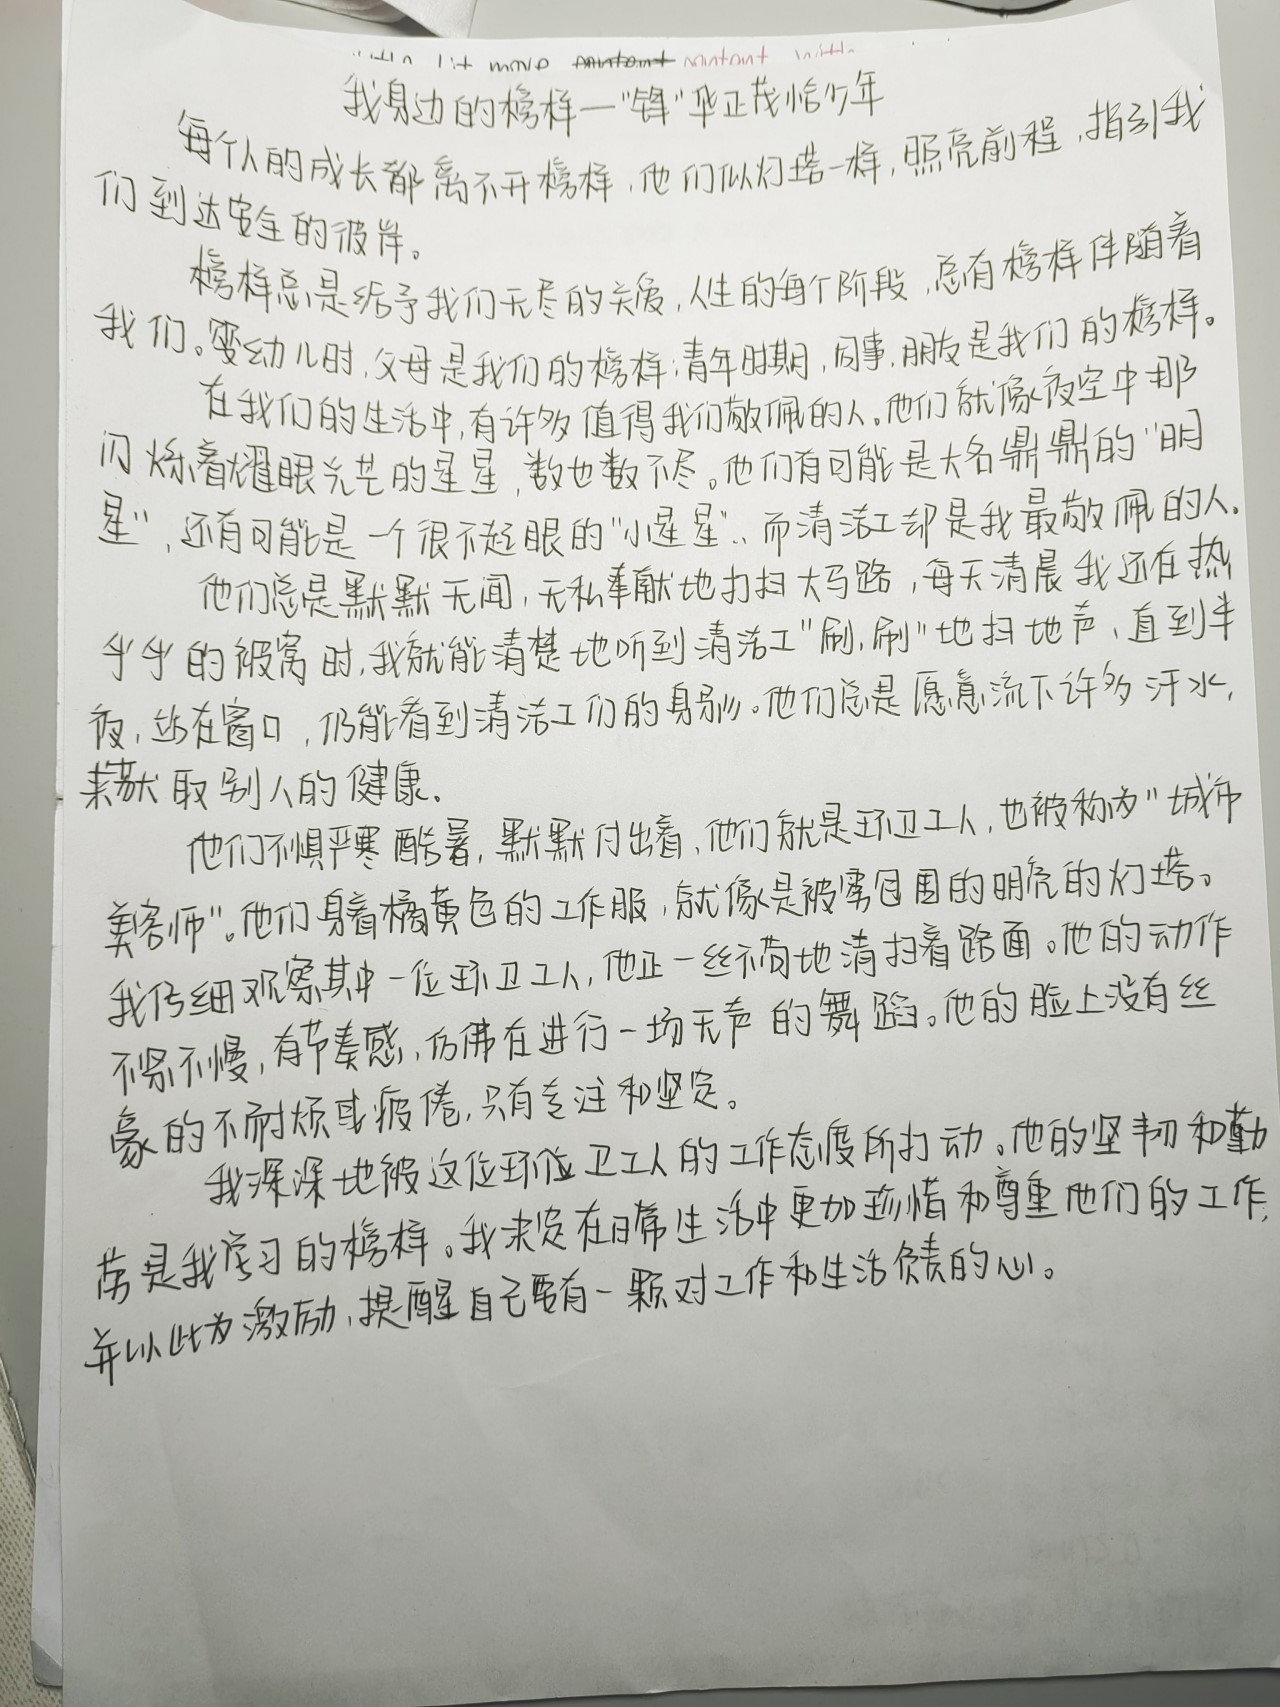 我身边的榜样—"锋"华正茂恰少年
每个人的成长都离不开榜样,他们似灯塔一样,照亮前程,指引我
们到达安全的彼岸。
榜样总是给予我们无尽的关爱,人生的每个阶段,总有榜样伴随着
我们。婴幼儿时,父母是我们的榜样;青年时期,同事,朋友是我们的榜样。
在我们的生活中,有许多值得我们敬佩的人。他们就像夜空中那
闪烁着耀眼光芒的星星,数也数不尽。他们有可能是大名鼎鼎的"明
星",还有可能是一个很不起眼的"小星星",而清洁工却是我最敬佩的人。
他们总是默默无闻,无私奉献地打扫大马路,每天清晨我还在热
乎乎的被窝时,我就能清楚地听到清洁工"刷,刷"地扫地声,直到半
夜,站在窗口,仍能看到清洁工们的身影。他们总是愿意流下许多汗水,
来献取别人的健康.
他们不惧严寒酷暑,默默付出着,他们就是环卫工人,也被称为"城市
美容师"。他们身着橘黄色的工作服,就像是被雾包围的明亮的灯塔。
我仔细观察其中一位环卫工人,他正一丝不苟地清扫着路面。他的动作
不紧不慢,有节奏感,仿佛在进行一场无声的舞蹈。他的脸上没有丝
豪的不耐烦或疲倦,只有专注和坚定。
我深深地被这位环位卫工人的工作态度所打动。他的坚韧和勤
劳是我学习的榜样。我决定在日常生活中更加珍惜和尊重他们的工作,
并以此为激励,提醒自己要有一颗对工作和生活负责的心。